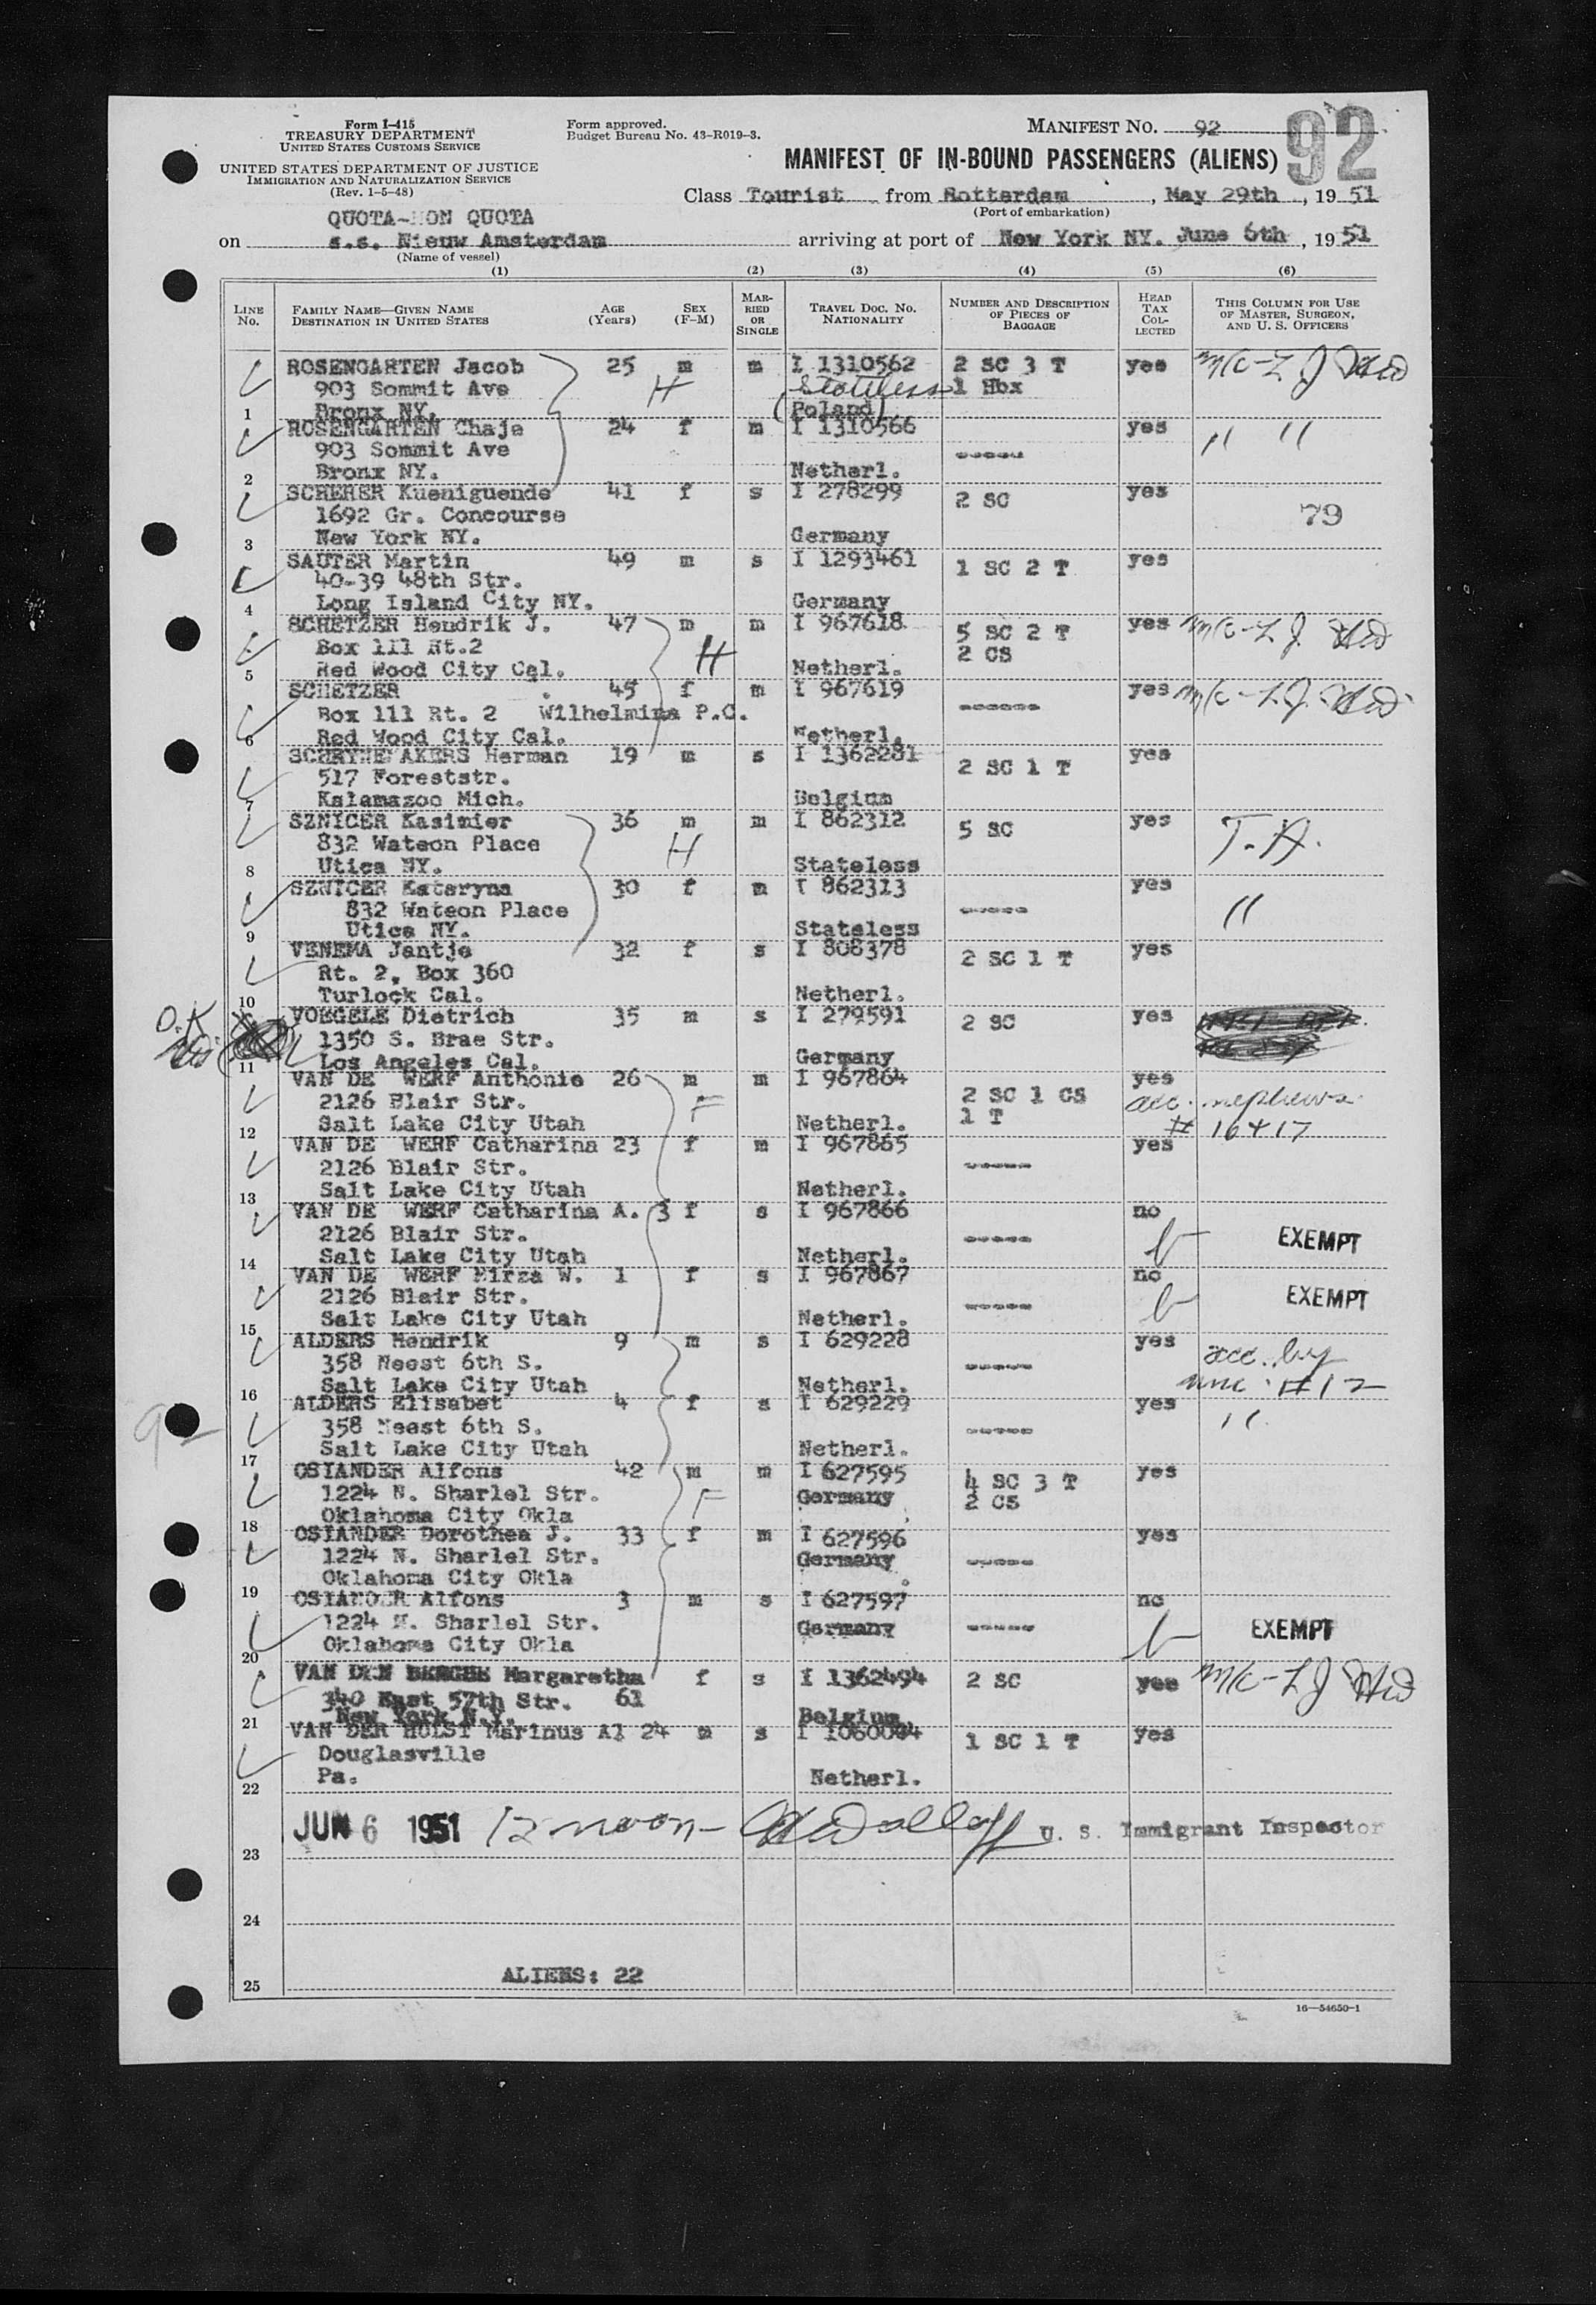 Form I-415
TREASURY DEPARTMENT
UNITED STATES CUSTOMS SERVICE
UNITED STATES DEPARTMENT OF JUSTICE
IMMIGRATION AND NATURALIZATION SERVICE
(Rev. 1-5-48)
Form approved.
Budget Bureau No. 43-R019-3.
MANIFEST NO. 92
92
MANIFEST OF IN-BOUND PASSENGERS (ALIENS)
Class Tourist from Rotterdam, May 29th, 1951
(Port of embarkation)
QUOTA-NON QUOTA
on s.s. Nieuw Amsterdam arriving at port of New York NY. June 6th, 1951
(Name of vessel)
(1) (2) (3) (4) (5) (6)
LINE No. FAMILY NAME—GIVEN NAME DESTINATION IN UNITED STATES AGE (Years) SEX (F-M) MARRIED OR SINGLE TRAVEL DOC. NO. NATIONALITY NUMBER AND DESCRIPTION OF PIECES OF BAGGAGE HEAD TAX COLLECTED THIS COLUMN FOR USE OF MASTER, SURGEON, AND U. S. OFFICERS
ROSENGARTEN Jacob 25 m m I 1310562 2 SC 3 T yes m/c-L J
903 Sommit Ave H Stateless 1 Hbx
1 Bronx NY. (Poland)
ROSENGARTEN Chaja 24 f m I 1310566 yes " "
903 Sommit Ave -----
2 Bronx NY. Netherl.
SCHERER Kueniguende 41 f s I 278299 2 SC yes
1692 Gr. Concourse 79
3 New York NY. Germany
SAUTER Martin 49 m s I 1293461 1 SC 2 T yes
40-39 48th Str.
4 Long Island City NY. Germany
SCHETZER Hendrik J. 47 m m I 967618 5 SC 2 T yes m/c-L J.
Box 111 Rt.2 H 2 CS
5 Red Wood City Cal. Netherl.
SCHETZER 45 f m I 967619 ------ yes m/c-L.J.
Box 111 Rt. 2 Wilhelmina P.C.
6 Red Wood City Cal. Netherl.
Herman 19 m s I 1362281 2 SC 1 T yes
517 Foreststr.
7 Kalamazoo Mich. Belgium
SZNICER Kasimier 36 m m I 862312 5 SC yes
832 Watson Place H T.A.
8 Utica NY. Stateless
SZNICER Kataryna 30 f m I 862313 yes
832 Watson Place ----- "
9 Utica NY. Stateless
VENEMA Jantje 32 f s I 808378 2 SC 1 T yes
Rt. 2, Box 360
10 Turlock Cal. Netherl.
O.K VOEGELE Dietrich 35 m s I 279591 2 SC yes
1350 S. Brae Str.
11 Los Angeles Cal. Germany
VAN DE WERF Anthonie 26 m m I 967864 2 SC 1 CS yes
2126 Blair Str. F 1 T acc. nephews
12 Salt Lake City Utah Netherl. # 16+17
VAN DE WERF Catharina 23 f m I 967865 yes
2126 Blair Str. -----
13 Salt Lake City Utah Netherl.
VAN DE WERF Catharina A. 3 f s I 967866 no
2126 Blair Str. ----- EXEMPT
14 Salt Lake City Utah Netherl.
VAN DE WERF Mirza W. 1 f s I 967867 no
2126 Blair Str. ----- EXEMPT
15 Salt Lake City Utah Netherl.
ALDERS Hendrik 9 m s I 629228 yes
358 Neest 6th S. ----- acc. by
16 Salt Lake City Utah Netherl. unc. #12
ALDERS Elisabet 4 f s I 629229 yes
92 358 Neest 6th S. ----- "
17 Salt Lake City Utah Netherl.
OSIANDER Alfons 42 m m I 627595 4 SC 3 T yes
1224 N. Sharlel Str. F Germany 2 CS
18 Oklahoma City Okla
OSIANDER Dorothea J. 33 f m I 627596 yes
1224 N. Sharlel Str. Germany -----
19 Oklahoma City Okla
OSIANDER Alfons 3 m s I 627597 no
1224 N. Sharlel Str. Germany ----- EXEMPT
20 Oklahoma City Okla
VAN DEN Margaretha f s I 1362494 2 SC yes m/c-L J
340 East 57th Str. 61
21 New York N.Y. Belgium
VAN DER HULST Marinus Al 24 m s I 1 SC 1 T yes
Douglasville
22 Pa. Netherl.
JUN 6 1951 12 noon- U. S. Immigrant Inspector
23
24
25 ALIENS: 22
16—54650-1